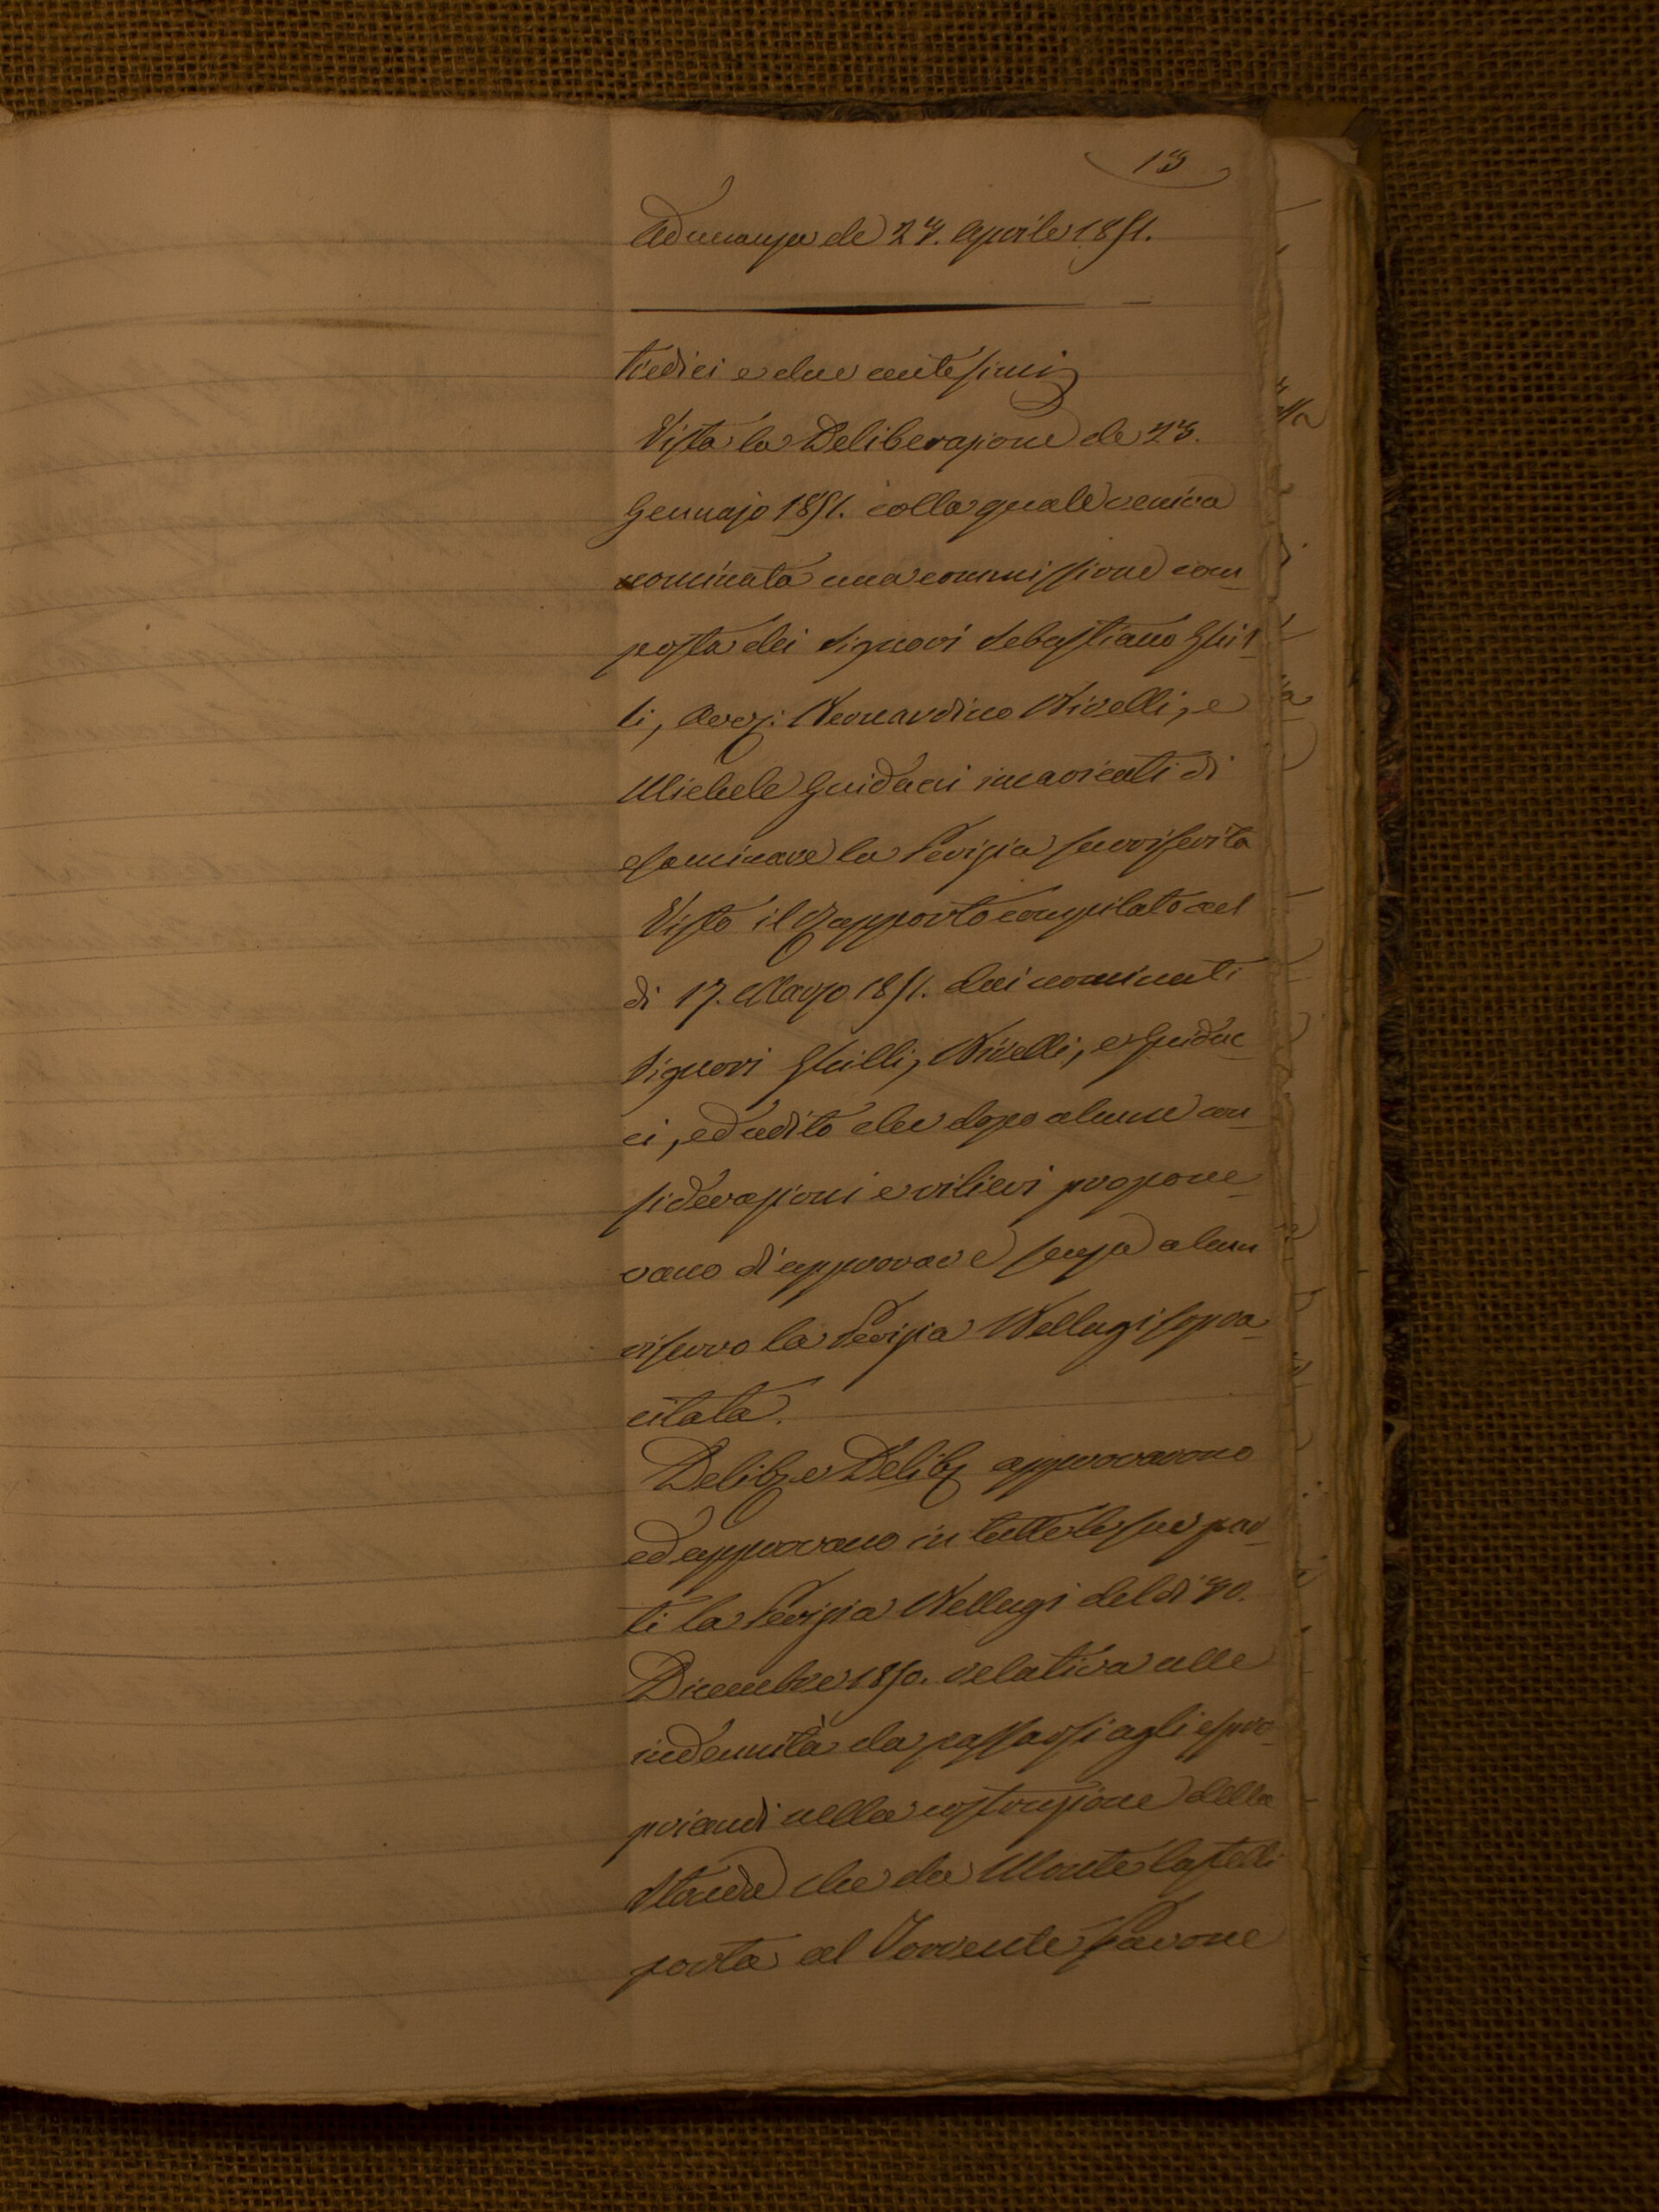 13
Adunanza de 24. Aprile 1851.
tredici e due centesimi
Vista la Deliberazione de 23.
Gennajo 1851. colla quale veniva
nominata una commissione com
posta dei Signori Sebastiano Ghil
li, Avv: Bernardino Vivelli, e
Michele Guiducci incaricati di
esaminare la Perizia surriferita
Visto il Rapporto compilato nel
di 17. Marzo 1851. dai nominati
Signori Ghilli, Vivelli, e Guiduc
ci, ed udito che dopo alcune con
siderazioni e rilievi propone
vano d'approvare senza alcun
riservo la Perizia Bellugi sopra
citata.
Delib. e Delib. approvarono
ed approvano in tutte le sue par
ti la Perizia Bellugi del di 30.
Dicembre 1850. relativa alle
indennità da passarsi agli espro
priandi nella costruzione della
Strada che da Monte Castelli
porta al Torrente Pavone